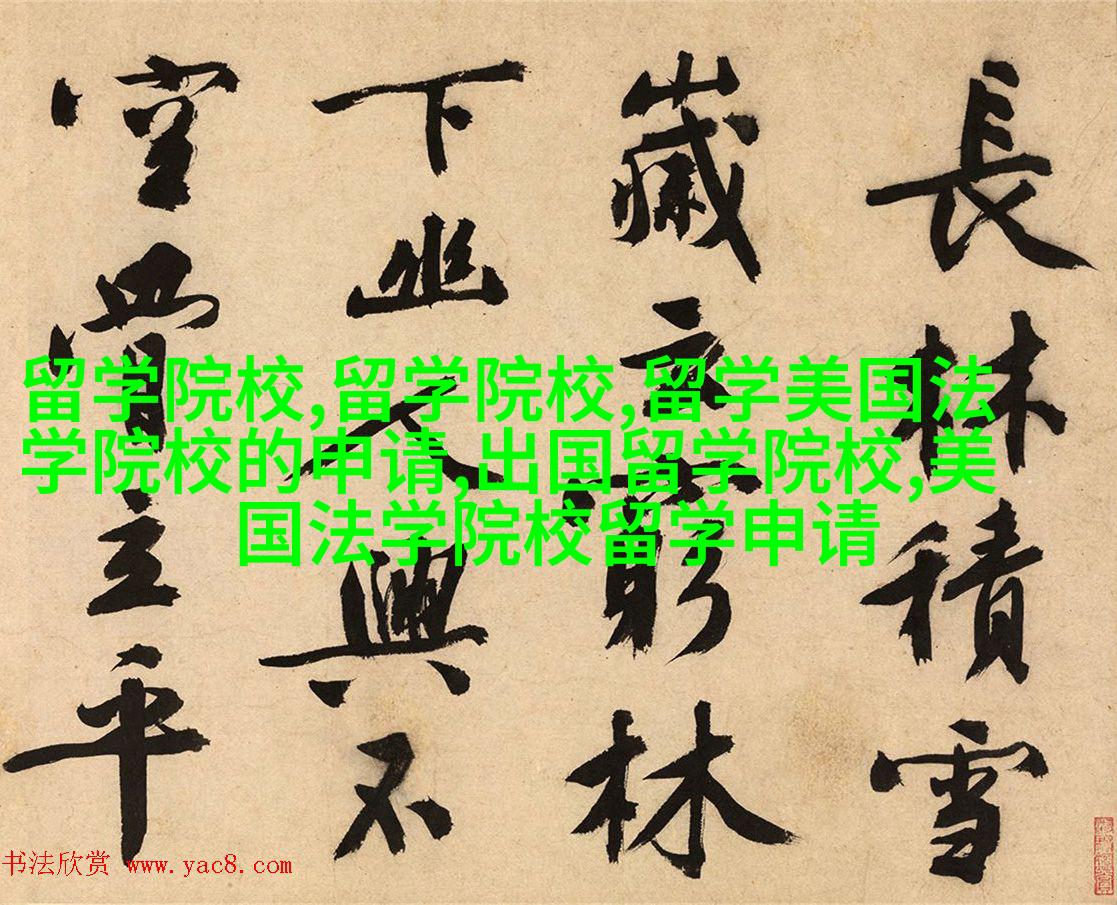 長林積雪
歲云窮林
下幽人興不
空立平
留学院校,留学院校,留学美国法
学院校的申请,出国留学院校,美
国法学院校留学申请
书法欣赏 www.yac8.com